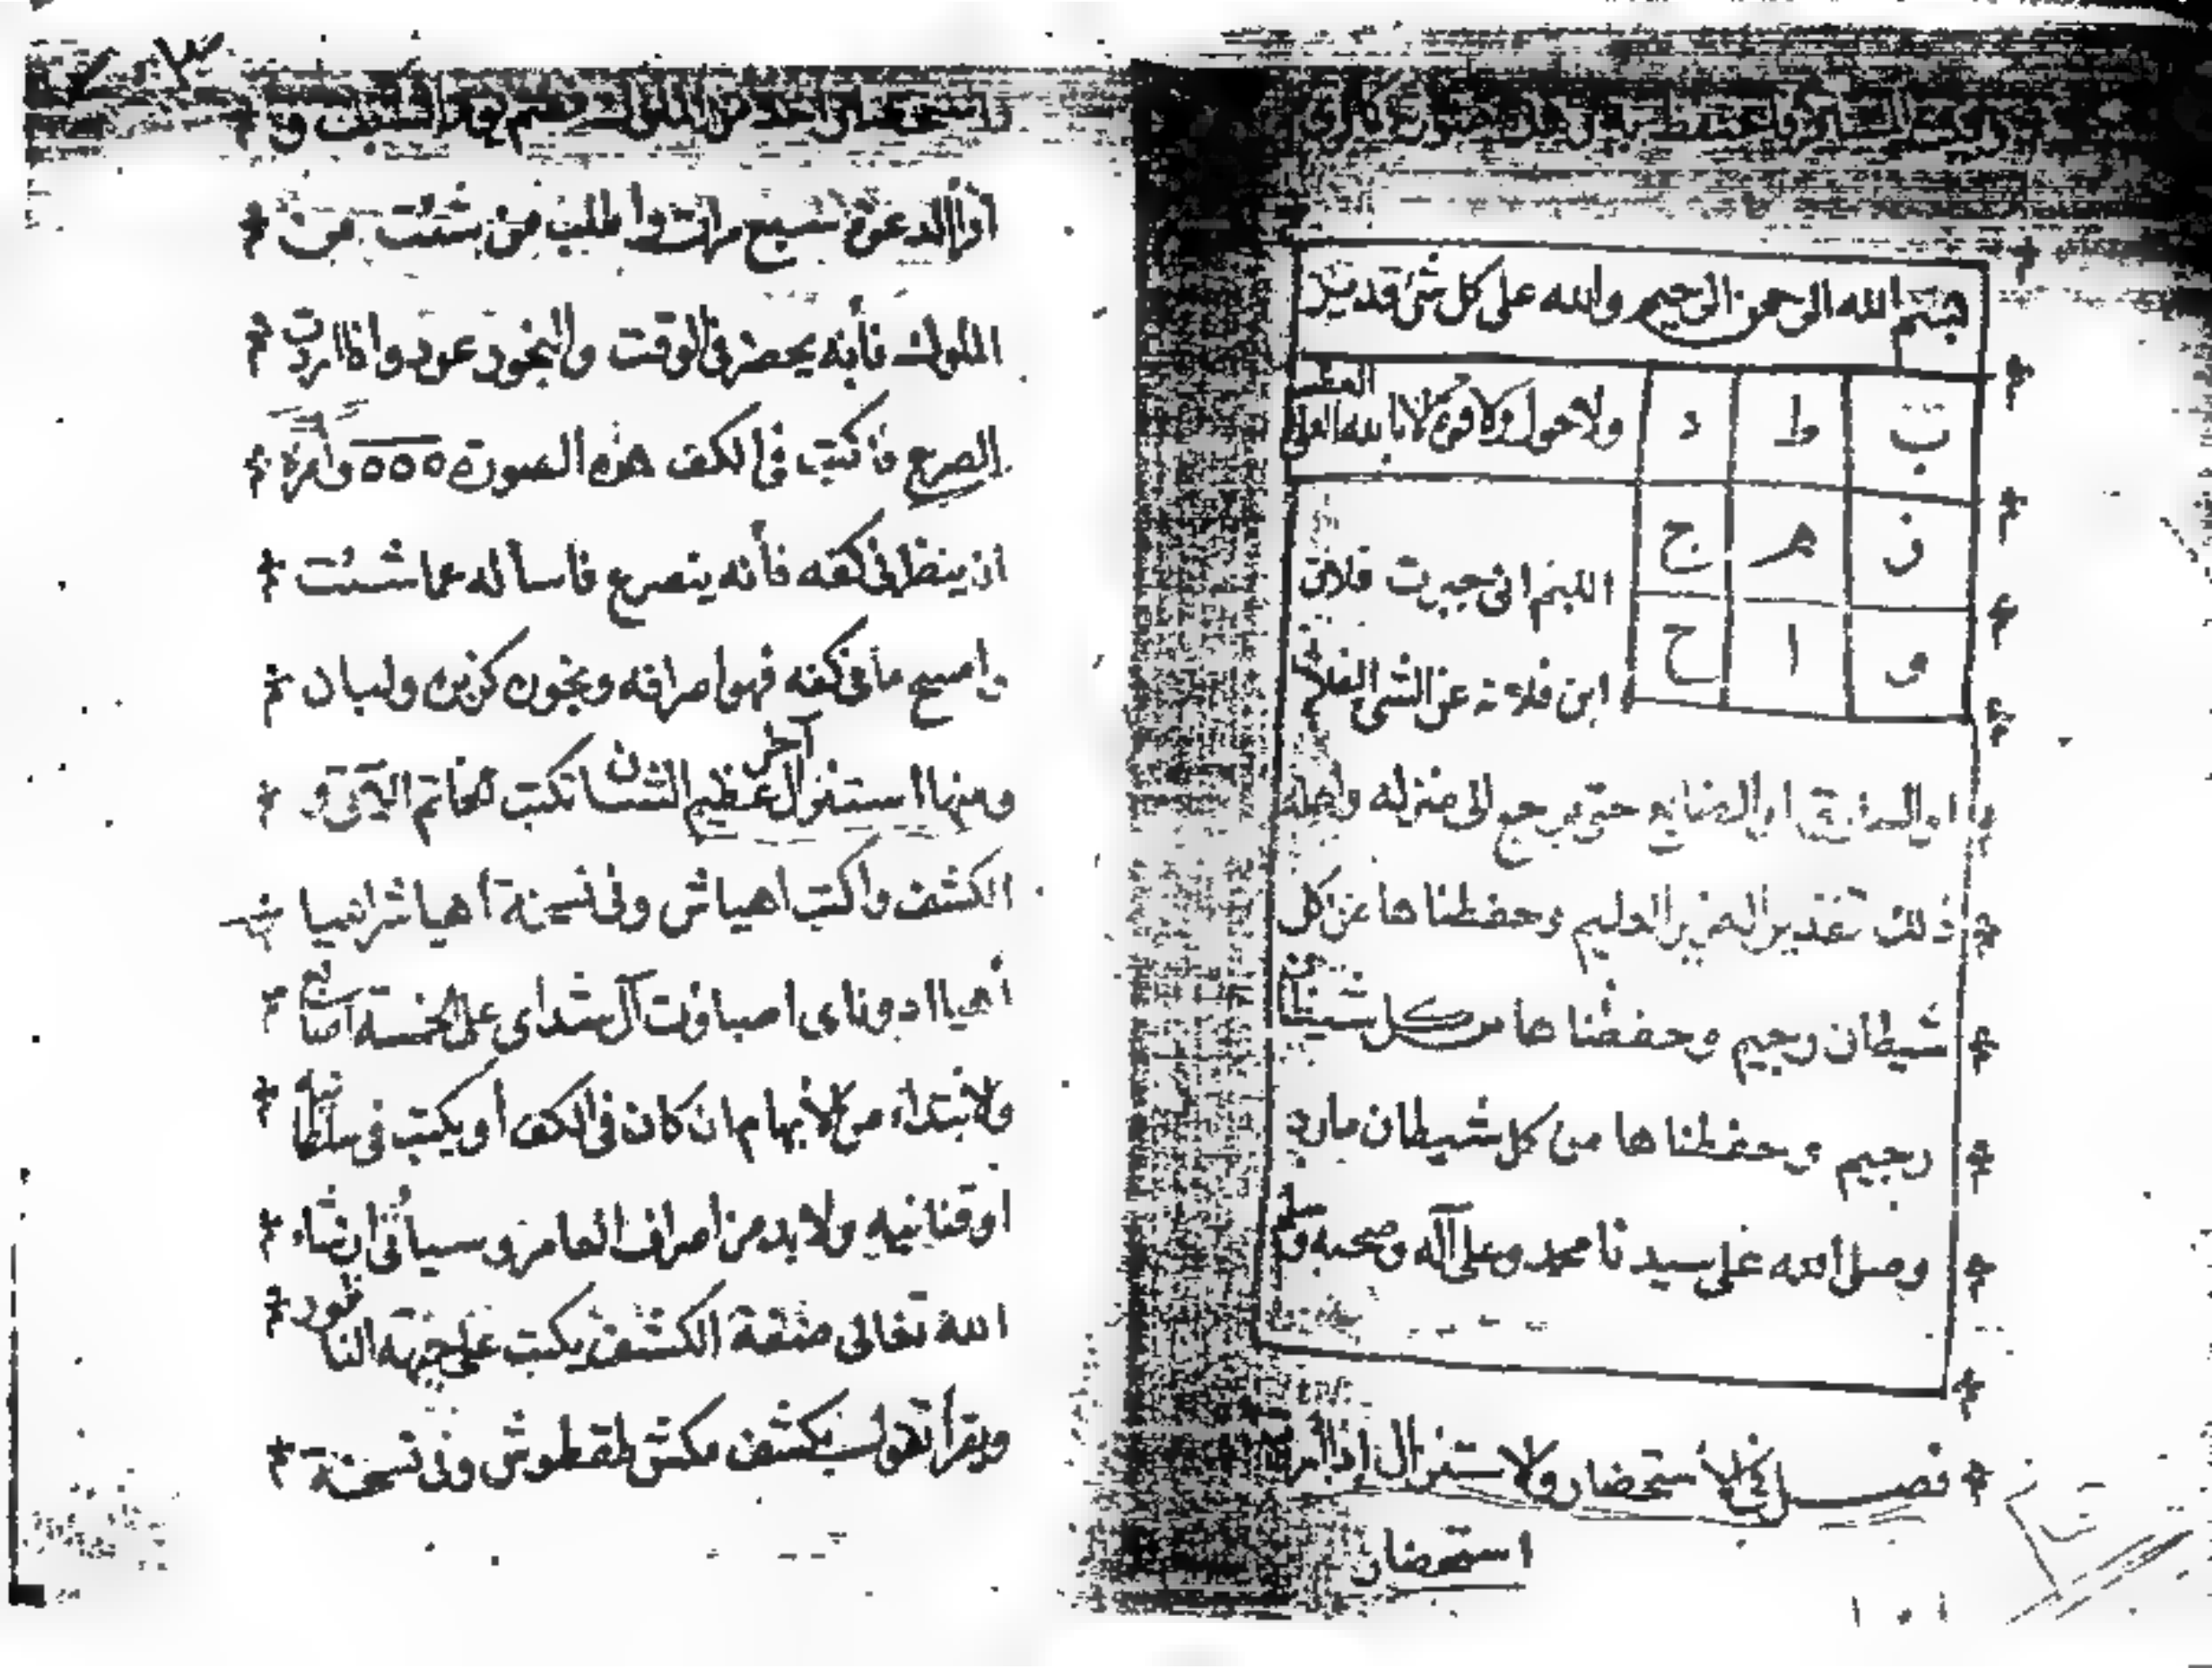 بسم الله الرحمن الرحيم والله على كل شئ قدير
ب ط د ولا حول ولا قوة الا بالله العلي العظيم
ز ه ج
اللهم اني جبرت فلان
و ا ح
ابن فلانة عن الشئ الفلاني
او السارق او الضايع حتى يرجع الى منزله واهله
ذلك تقدير العزيز العليم وحفظناها من كل
شيطان رجيم وحفظناها من كل شيطان
رجيم وحفظناها من كل شيطان مارد
وصلى الله على سيدنا محمد وعلى آله وصحبه وسلم
فصل في الاستحضار والاستنزال اذا اردت
استحضار
١٠١
٢٠٣
واستحضر احد من الملوك
أقرأ الدعوة سبع مرات واطلب من شئت من
الملوك فأنه يحضر في الوقت والبخور عود واذا اردت
الصرع فأكتب في الكف هذه الصورة ٥٥٥٥ وأمره
ان ينظر في كفه فأنه ينصرع فاسأله عما شئت
وامسح ما في كفه فهو اصرافه وبخور كزبره ولبان
ومنها استنزال آخر عظيم الشان تكتب الخاتم
الكشف واكتب اهياش وفي نسخة أهيا شراهيا
أهيا ادوناى اصباؤت آل شداى على الخمسة اصابع
والابتداء من الابهام ان كان في الكف أو يكتب في سلطانيه
او قنانيه ولا بد من اصراف العامر وسيأتي ان شاء
الله تعالى صفة الكشف يكتب على جبهة الناظور
ويقرأ تقول بكشف مكش لمقطوش وفي نسخة